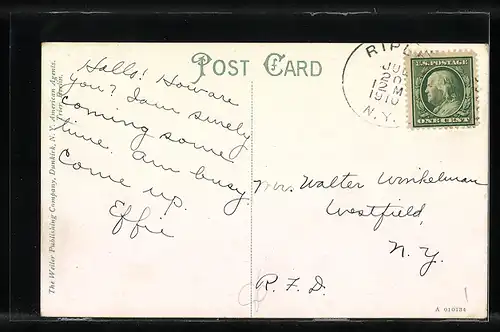 POST CARD
Hallo! How are
you? I am surely
coming some
time. Am busy.
Come up.
Effie
The Weller Publishing Company, Dunkirk, N. Y. American Agents.
RIPL
JUL
20
12 M
1910
N.Y.
U.S. POSTAGE
ONE CENT
Mrs. Walter Winkelman
Westfield,
N. Y.
R. F. D.
A 010734